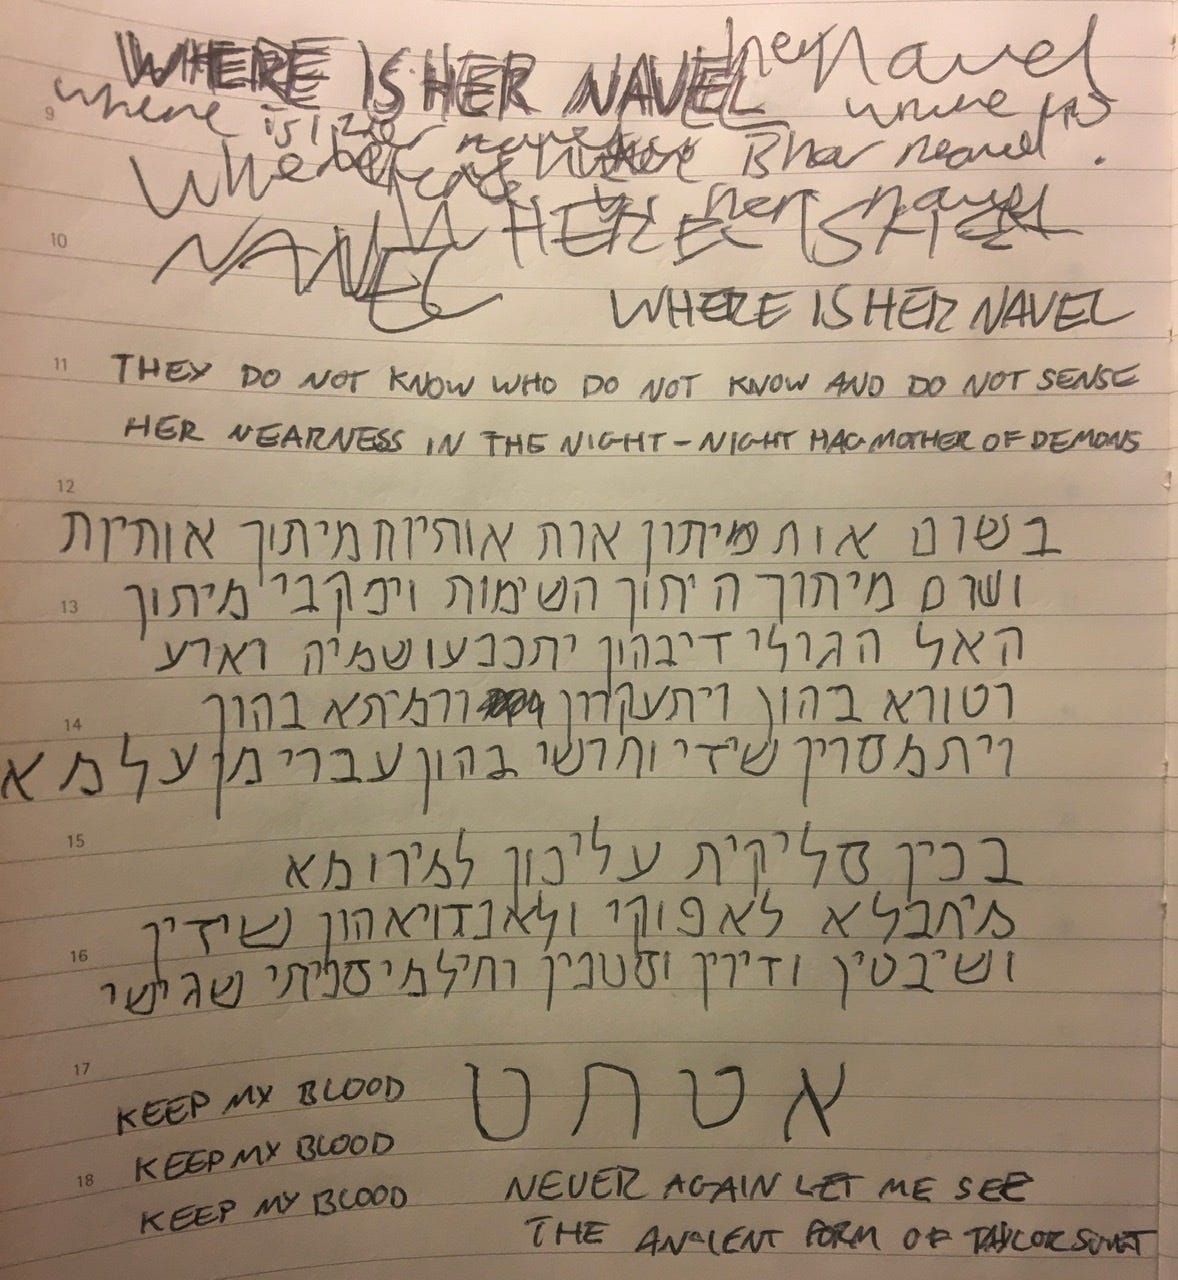 WHERE IS HER NAVEL her Navel
where is her navel where is
where where is her navel.
her navel
WHERE IS HER
NAVEL
WHERE IS HER NAVEL
THEY DO NOT KNOW WHO DO NOT KNOW AND DO NOT SENSE
HER NEARNESS IN THE NIGHT - NIGHT HAG MOTHER OF DEMONS
בשום אות מיתון אות אותיות מיתוך אותיות
ושום מיתוך היתוך השימות וינקבי מיתוך
האל הגולי דיבהון יתכבעו שמיה וארע
וטורא בהון ויתעקרון ורמיתא בהון
ויתמסרין שידי וחרשי בהון עברי מן עלמא
בכין סליקית עליכון למירומא
מיחבלא לאפוקי ולאנדויאהון שידין
ושיבטין ודיוין וסטנין וחילמי סניתי שגישי
KEEP MY BLOOD
KEEP MY BLOOD
KEEP MY BLOOD
א ט ח ט
NEVER AGAIN LET ME SEE
THE ANCIENT FORM OF TAYLOR SWIFT
9
10
11
12
13
14
15
16
17
18